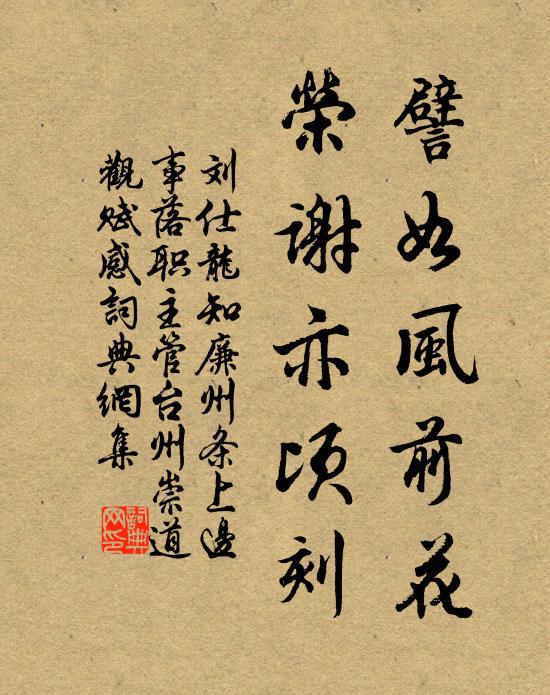 譬如風前花
榮謝亦頃刻
刘仕龍知廉州条上邊
事落职主管台州崇道
觀赋感詞典網集
詞典
网印